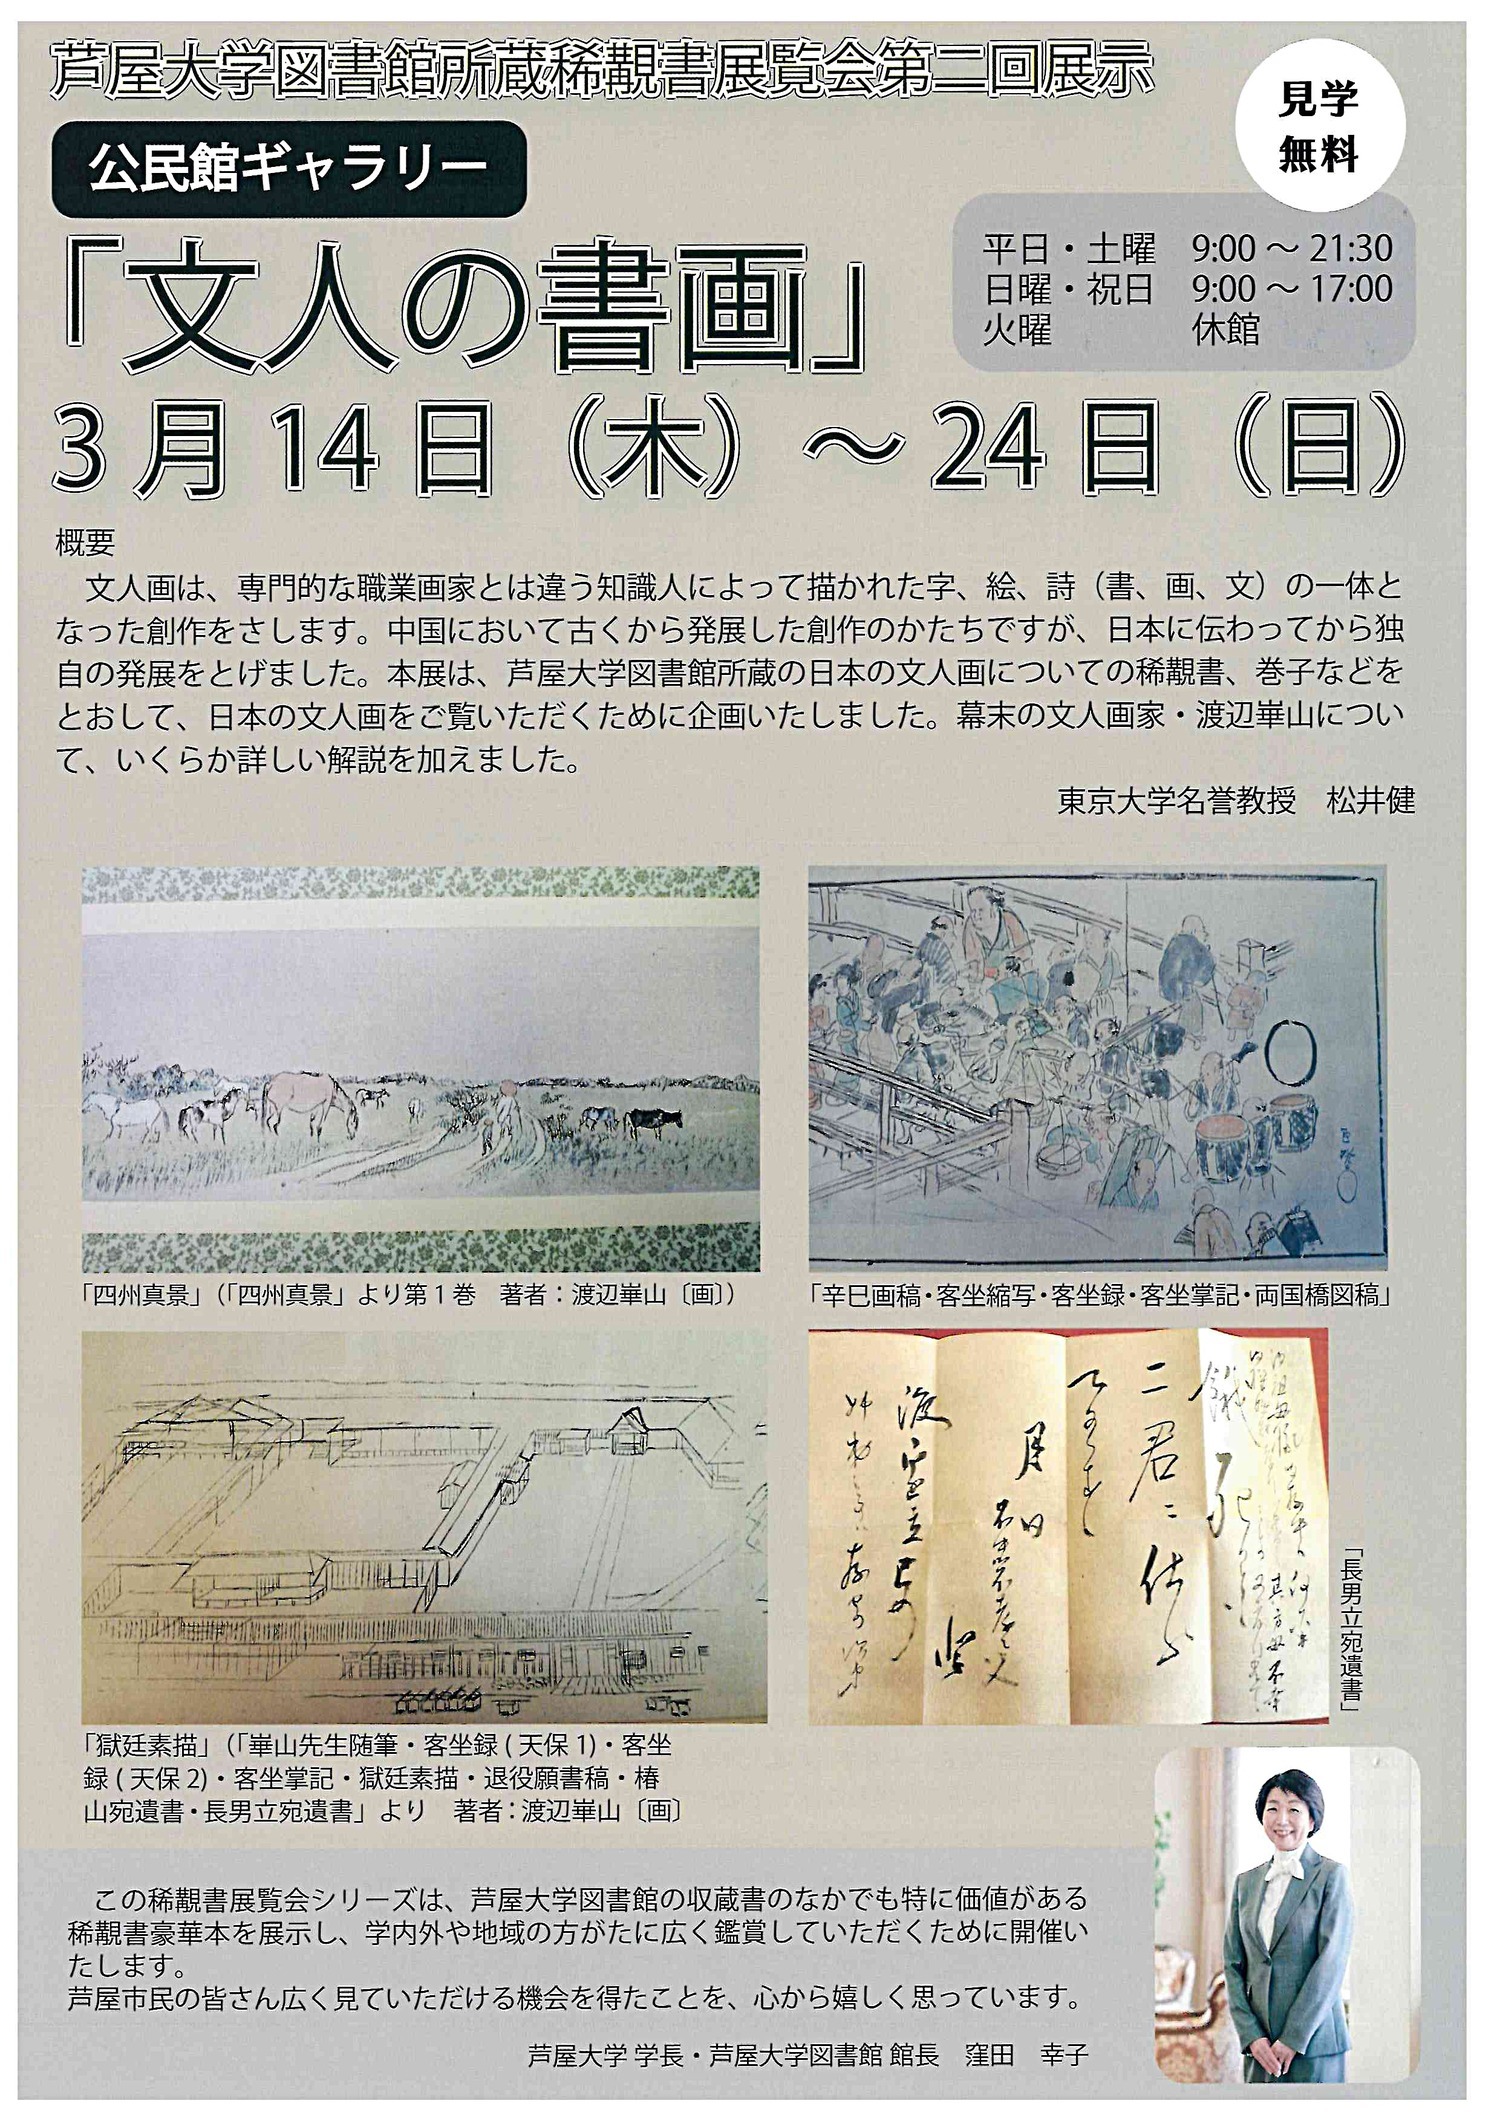 芦屋大学図書館所蔵稀覯書展覧会第二回展示
見学
無料
公民館ギャラリー
「文人の書画」
平日・土曜　9:00 ～ 21:30
日曜・祝日　9:00 ～ 17:00
火曜　　　　休館
3 月 14 日（木）～ 24 日（日）
概要
　文人画は、専門的な職業画家とは違う知識人によって描かれた字、絵、詩（書、画、文）の一体と
なった創作をさします。中国において古くから発展した創作のかたちですが、日本に伝わってから独
自の発展をとげました。本展は、芦屋大学図書館所蔵の日本の文人画についての稀覯書、巻子などを
とおして、日本の文人画をご覧いただくために企画いたしました。幕末の文人画家・渡辺崋山につい
て、いくらか詳しい解説を加えました。
東京大学名誉教授　松井健
「四州真景」（「四州真景」より第 1 巻　著者：渡辺崋山〔画〕）
「辛巳画稿・客坐縮写・客坐録・客坐掌記・両国橋図稿」
二君ニ
月
「長男立宛遺書」
「獄廷素描」（「崋山先生随筆・客坐録 ( 天保 1)・客坐
録 ( 天保 2)・客坐掌記・獄廷素描・退役願書稿・椿
山宛遺書・長男立宛遺書」より　著者：渡辺崋山〔画〕
　この稀覯書展覧会シリーズは、芦屋大学図書館の収蔵書のなかでも特に価値がある
稀覯書豪華本を展示し、学内外や地域の方がたに広く鑑賞していただくために開催い
たします。
芦屋市民の皆さん広く見ていただける機会を得たことを、心から嬉しく思っています。
芦屋大学 学長・芦屋大学図書館 館長　窪田　幸子